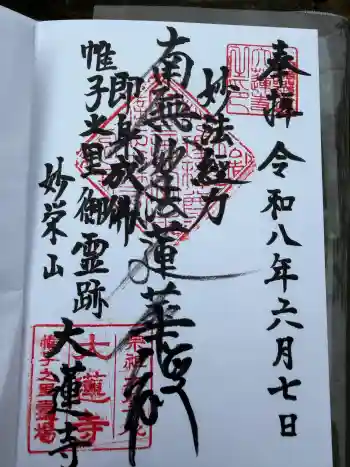 奉拝 令和八年六月七日
妙法経力
南無妙法蓮華経
即身成佛
帷子之里御霊跡
妙栄山
大蓮寺
大蓮寺
帷子之里霊場